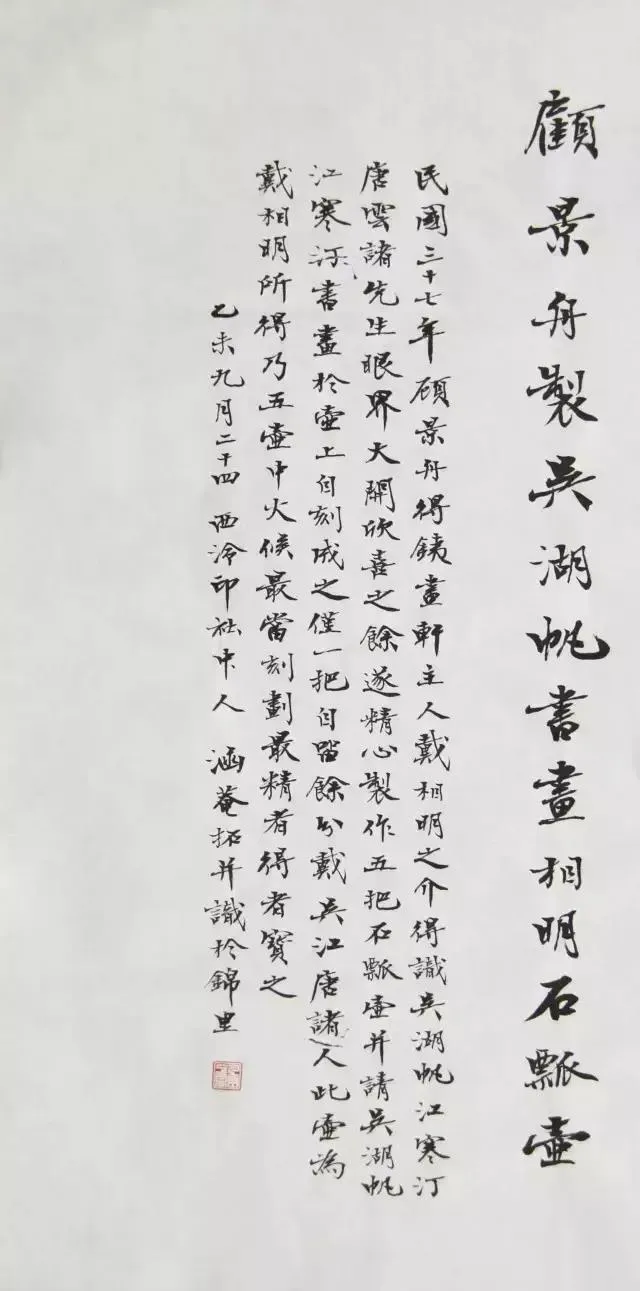 顧景舟製吳湖帆書畫相明石瓢壺
民國三十七年顾景舟得銕畫軒主人戴相明之介得識吳湖帆江寒汀
唐雲諸先生眼界大開欣喜之餘遂精心製作五把石瓢壺并請吳湖帆
江寒汀書畫於壺上自刻成之僅一把自留餘分戴吳江唐諸人此壺為
戴相明所得乃五壺中火候最當刻劃最精者得者寶之
乙未九月二十四 西泠印社中人 涵菴拓并識於錦里